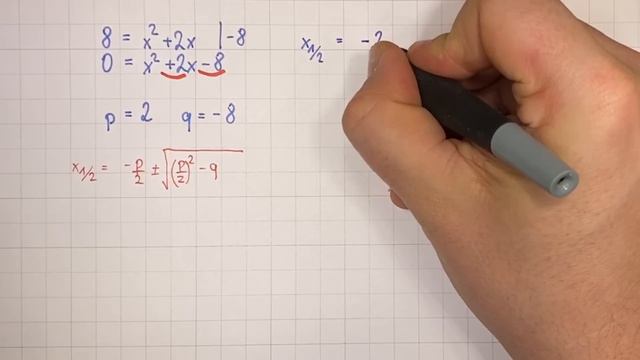 8 = x² + 2x | -8
0 = x² + 2x - 8
p = 2 q = -8
x₁/₂ = -p/2 ± √((p/2)² - q)
x₁/₂ = -2